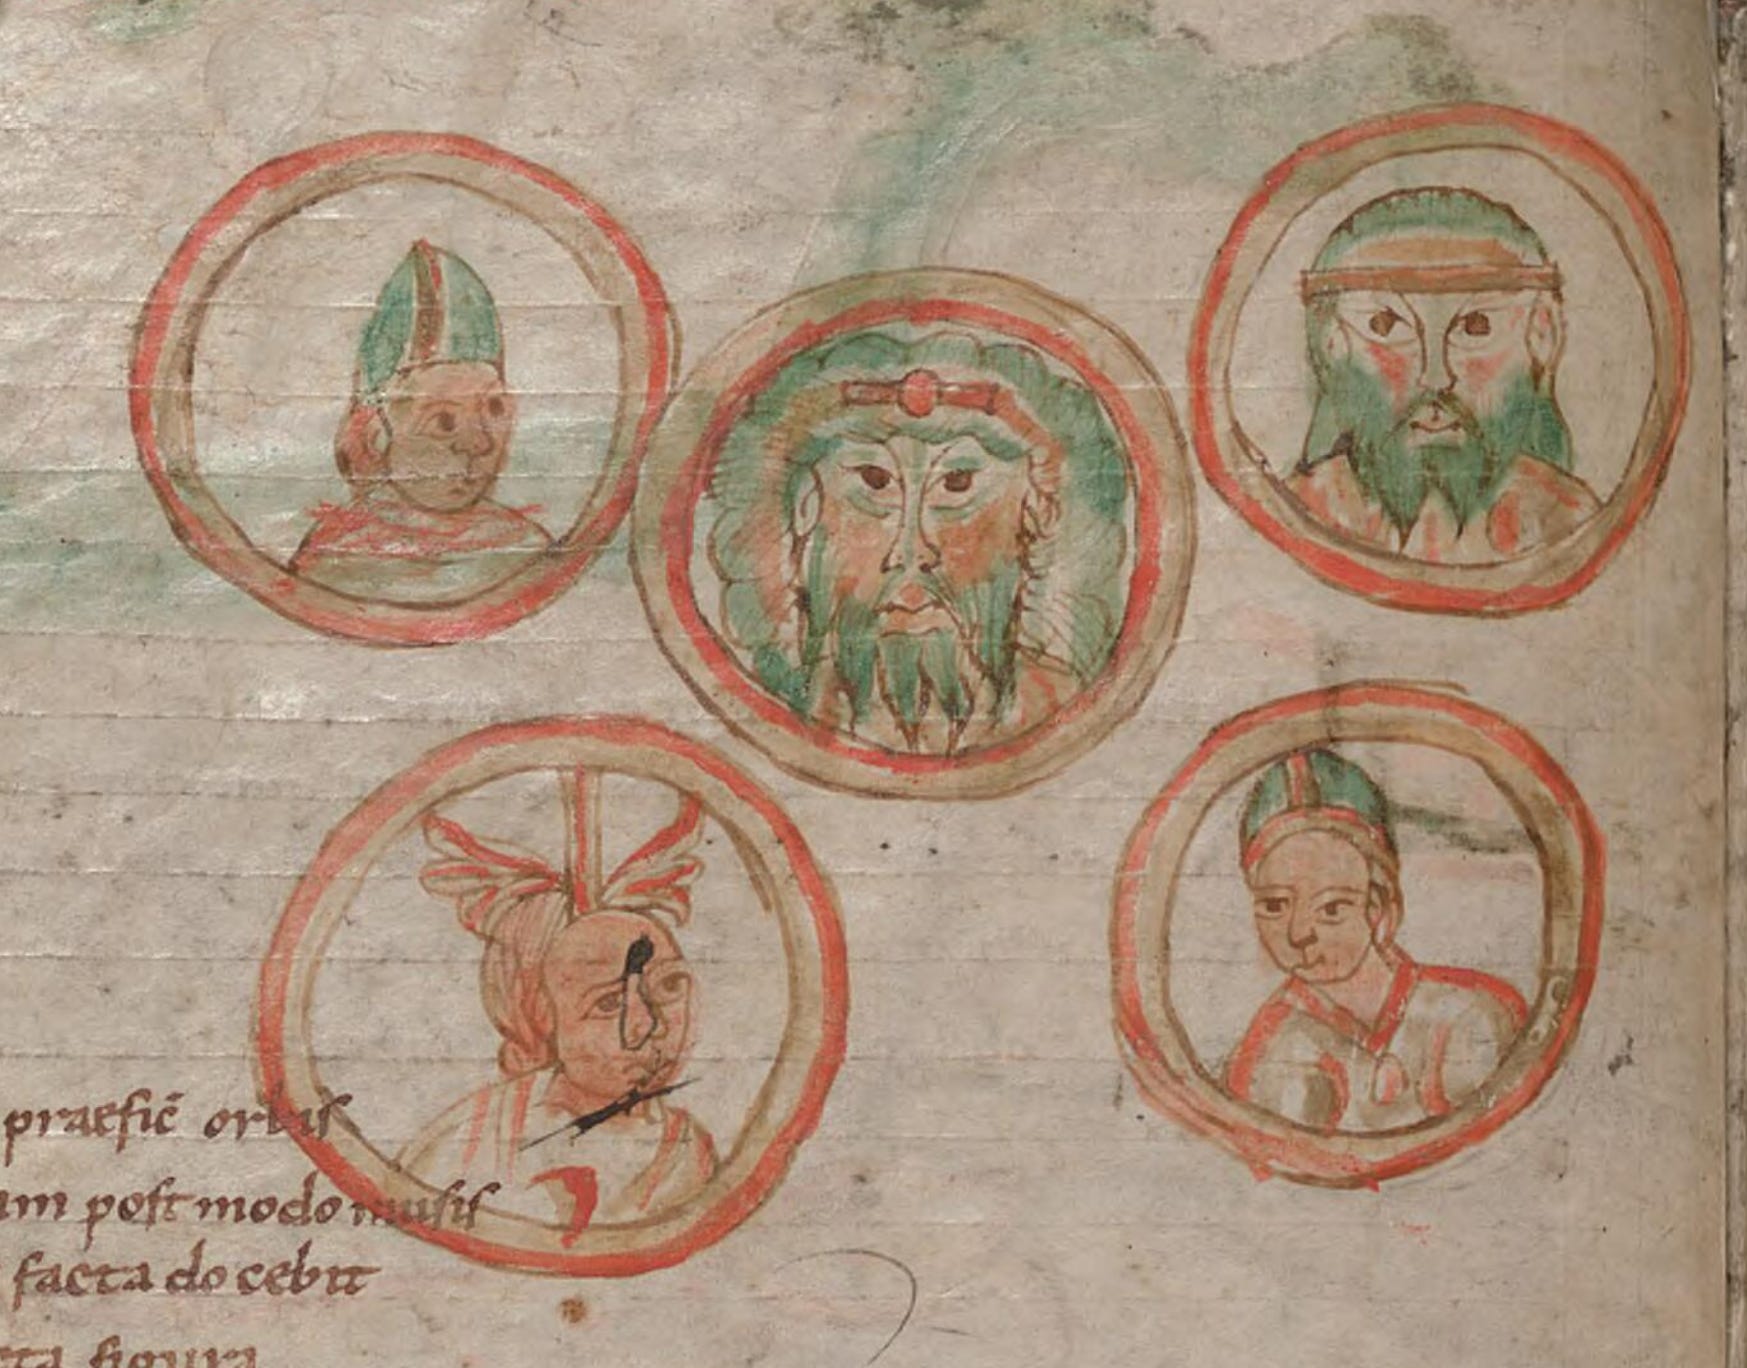 praeficẽ orbis
am post modo musis
facta docebit
ta figura